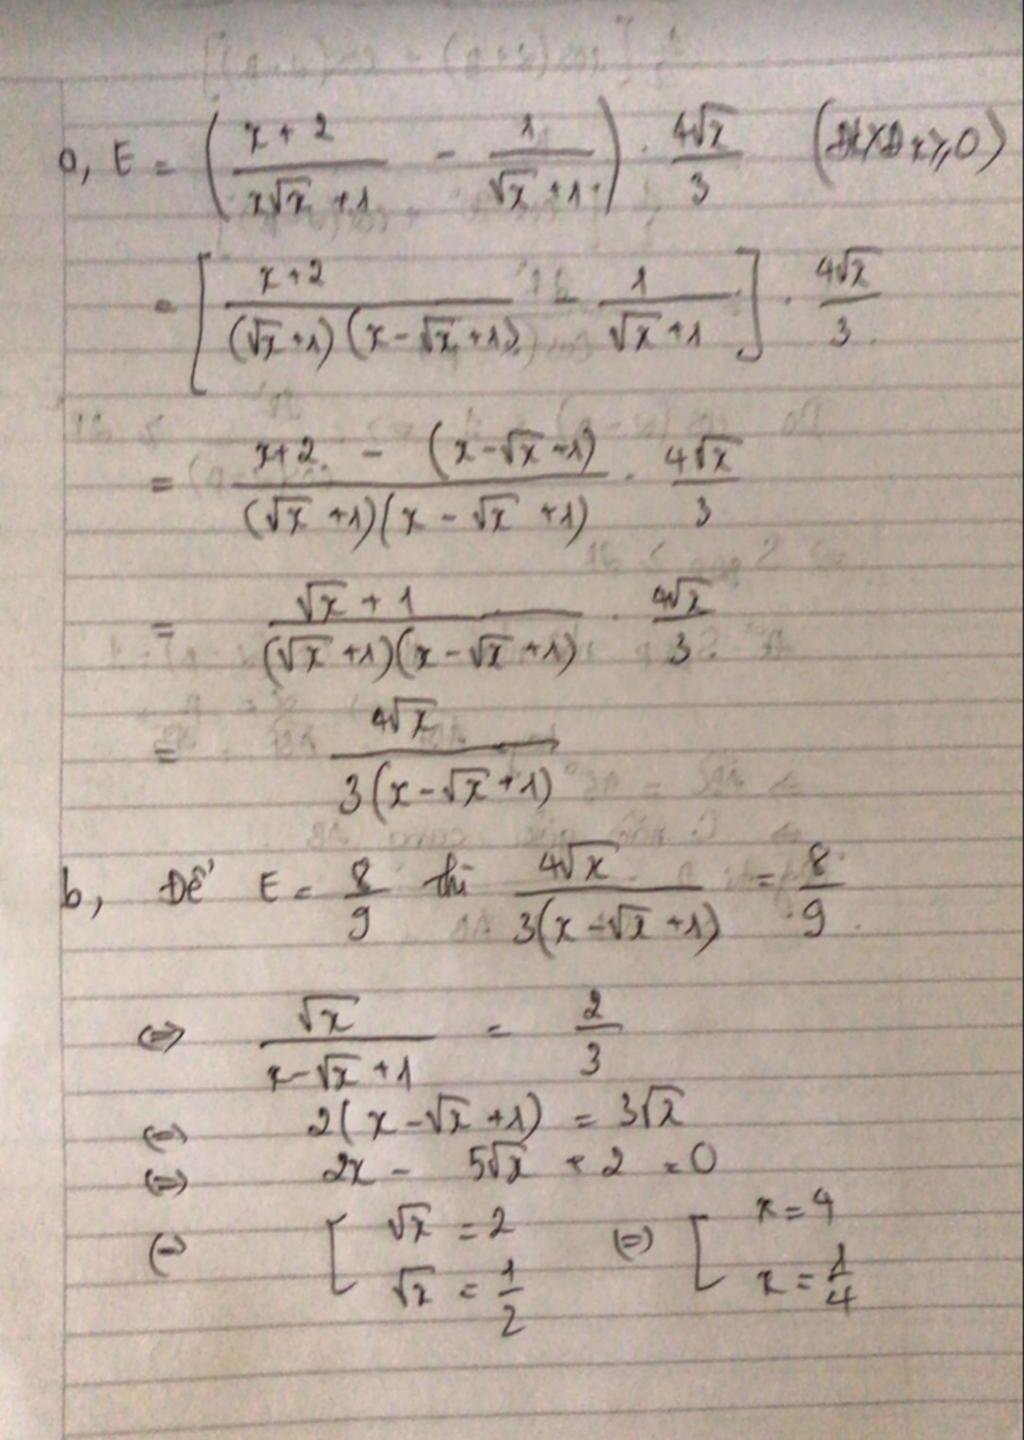 a, E = ( (x + 2)/(x√x + 1) - 1/(√x + 1) ) . 4√x/3 (ĐKXĐ x ≥ 0)
= [ (x + 2)/((√x + 1)(x - √x + 1)) - 1/(√x + 1) ] . 4√x/3
= (x + 2 - (x - √x + 1))/((√x + 1)(x - √x + 1)) . 4√x/3
= (√x + 1)/((√x + 1)(x - √x + 1)) . 4√x/3
= 4√x/(3(x - √x + 1))
b, Để E = 8/9 thì 4√x/(3(x - √x + 1)) = 8/9
⇔ √x/(x - √x + 1) = 2/3
⇔ 2(x - √x + 1) = 3√x
⇔ 2x - 5√x + 2 = 0
⇔ [ √x = 2 ; √x = 1/2 ⇔ [ x = 4 ; x = 1/4